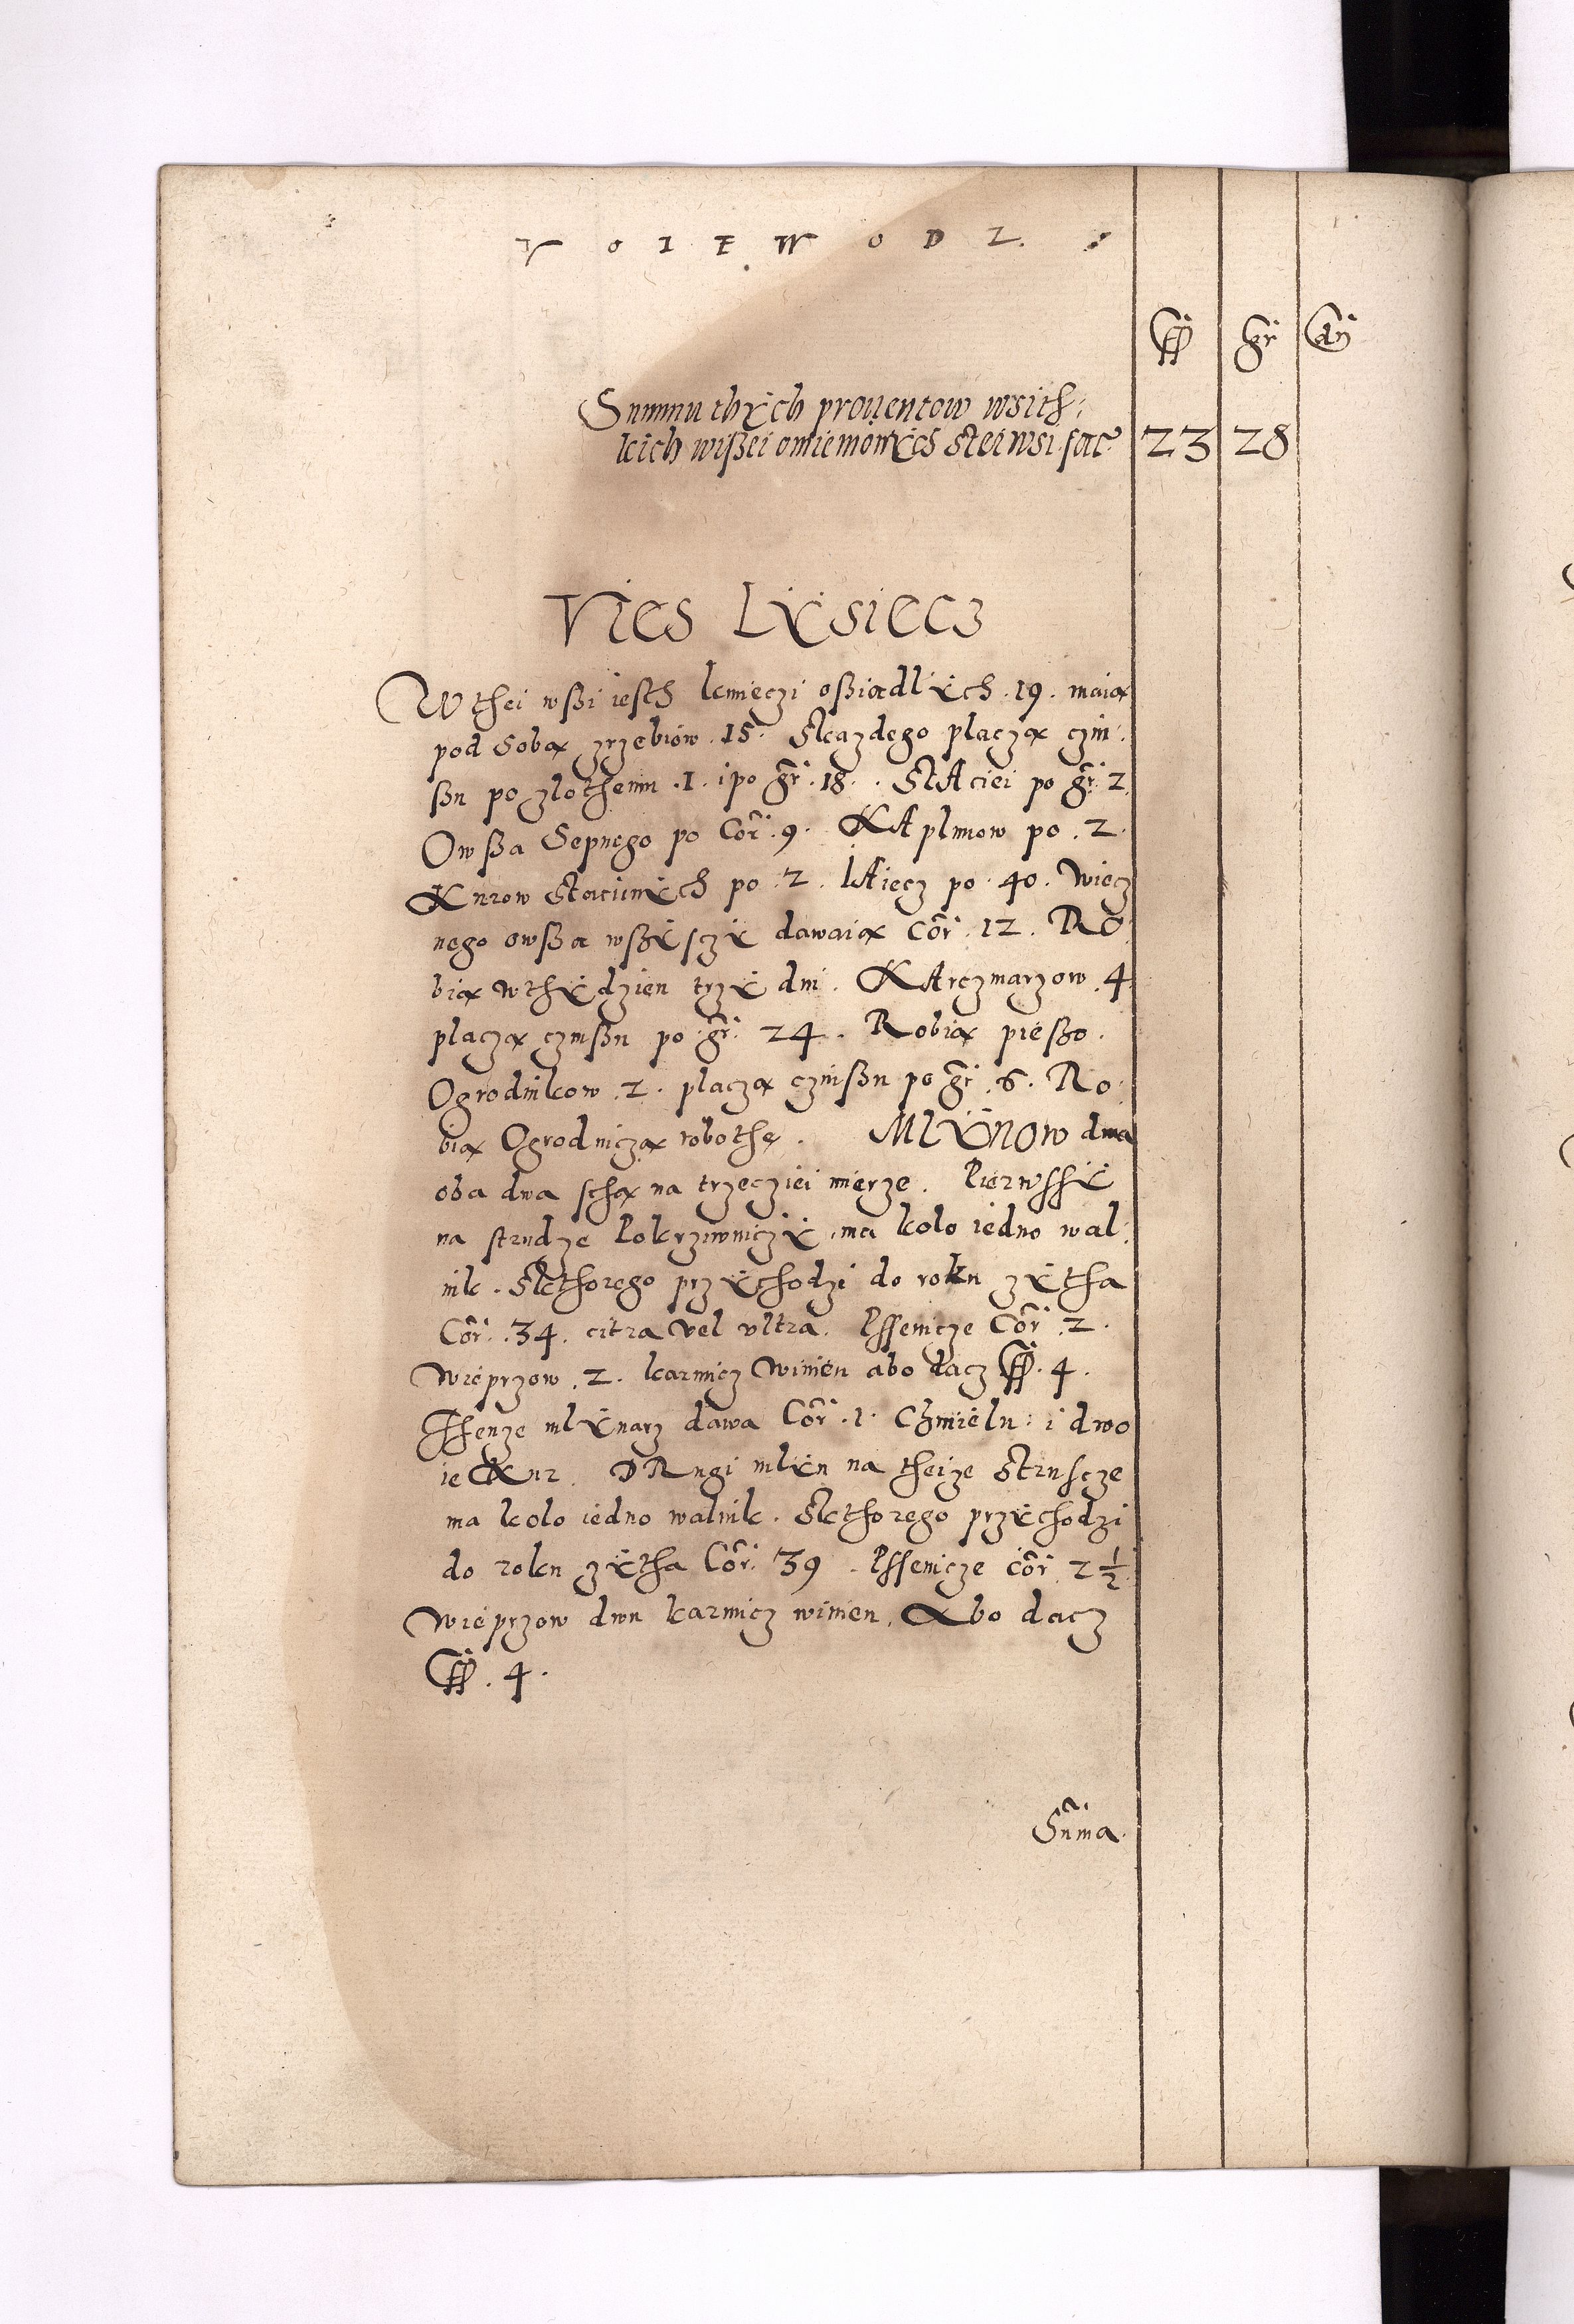 VOIEWODZ.
ff gr đn
Summa thÿch prouentow wsith:
kich wißei omiemonÿch Stei wsi fac̃ 23 28
VIES LŸSIECZ
W thei wßi iesth kmieczi oßiadlÿch .19. maią
pod Sobą zrzebiow .15. Skazdego placzą czin:
ßu po zlothemu .1. i po gr̃ .18. StAciei po gr̃. 2.
Owßa Sepnego po Cor̃ .9. KAplunow po .2.
Kurow Stacinÿch po .2. IAiecz po .40. Wiecz
nego owßa wßÿsczÿ dawaią Cor̃ .12. RO:
bią w thÿdzien trzÿ dni. KArczmarzow .4.
placzą czinßu po gr̃. 24. Robią pießo.
Ogrodnikow .2. placzą czinßu po gr̃ .6. Ro:
bią Ogrodniczą robothę. MLŸNOW dwa
oba dwa sthą na trzecziei mierze. Pierwssÿ
na strudze Pokrziwniczÿ, ma kolo iedno wal:
nik. Skthorego przÿchodzi do roku zÿtha
Cor̃. .34. citra vel vltra. Pssenicze Cor̃ .2.
Wieprzow .2. karmicz Winien abo dacz ff. 4.
Tssenze mlÿnarz dawa Cor̃ .1. Chmielu: i dwo
ie Kur. DRugi mlÿn na theize Strusze
ma kolo iedno walnik. Skthorego przÿchodzi
do roku zÿtha Cor̃. 39. Pssenicze cor̃ .2 1/2.
Wieprzow dwu karmicz winien, Abo dacz
ff. 4.
Sum̃a.